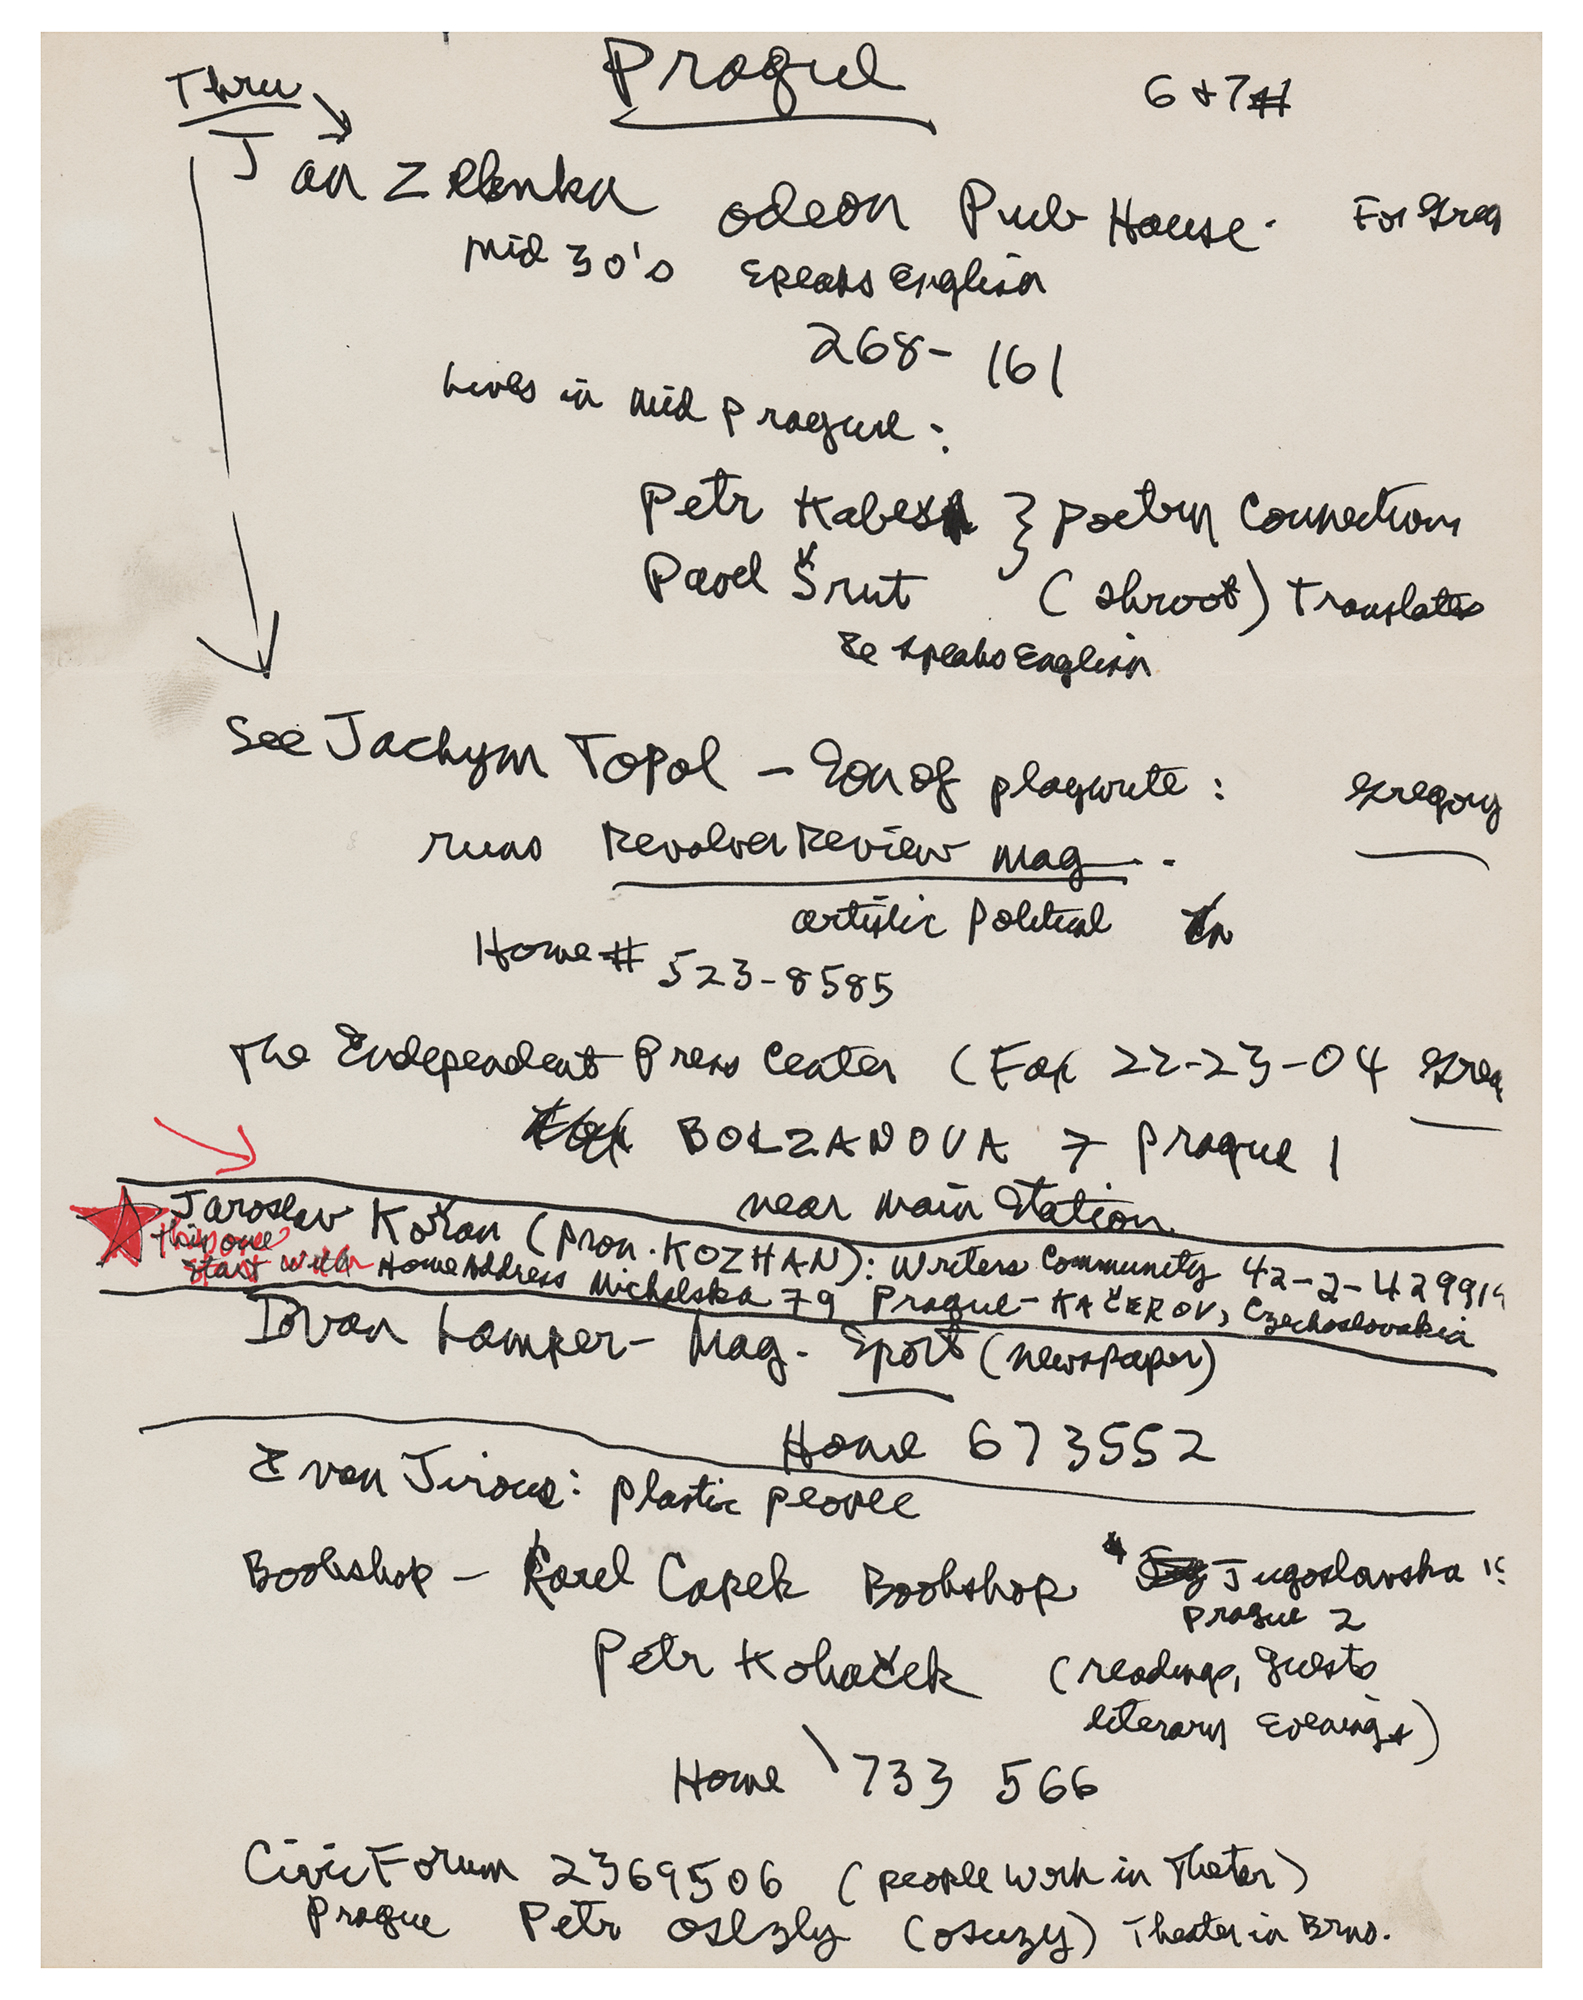 Thru
Prague
6 + 7 #
Jan Zelenka Odeon Pub House. For Greg
Mid 30's Speaks English
268-161
Lives in mid Prague:
Petr Kabes } Poetry Connections
Pavel Šrut (shroot) Translates
& speaks English
See Jachym Topol - Son of playwrite: Gregory
runs Revolver Review mag -.
artistic Political
Home # 523-8585
The Independent Press Center (Fax 22-23-04 Greg
BOLZANOVA 7 Prague 1
near Main Station
Jaroslav Kořan (Pron. KOZHAN): Writers Community 42-2-42991
this one
start with Home Address Michelska 79 Prague-KAČEROV, Czechoslovakia
Ivan Lamper- Mag. Sport (newspaper)
Home 673552
Evan Jirous: plastic people
Bookshop - Karel Capek Bookshop Jugoslavska
Prague 2
Petr Kohaček (readings, guests
literary Evenings)
Home 733 566
Civic Forum 2369506 (people work in Theater)
Prague Petr Oslzly (Osuzy) Theater in Brno.